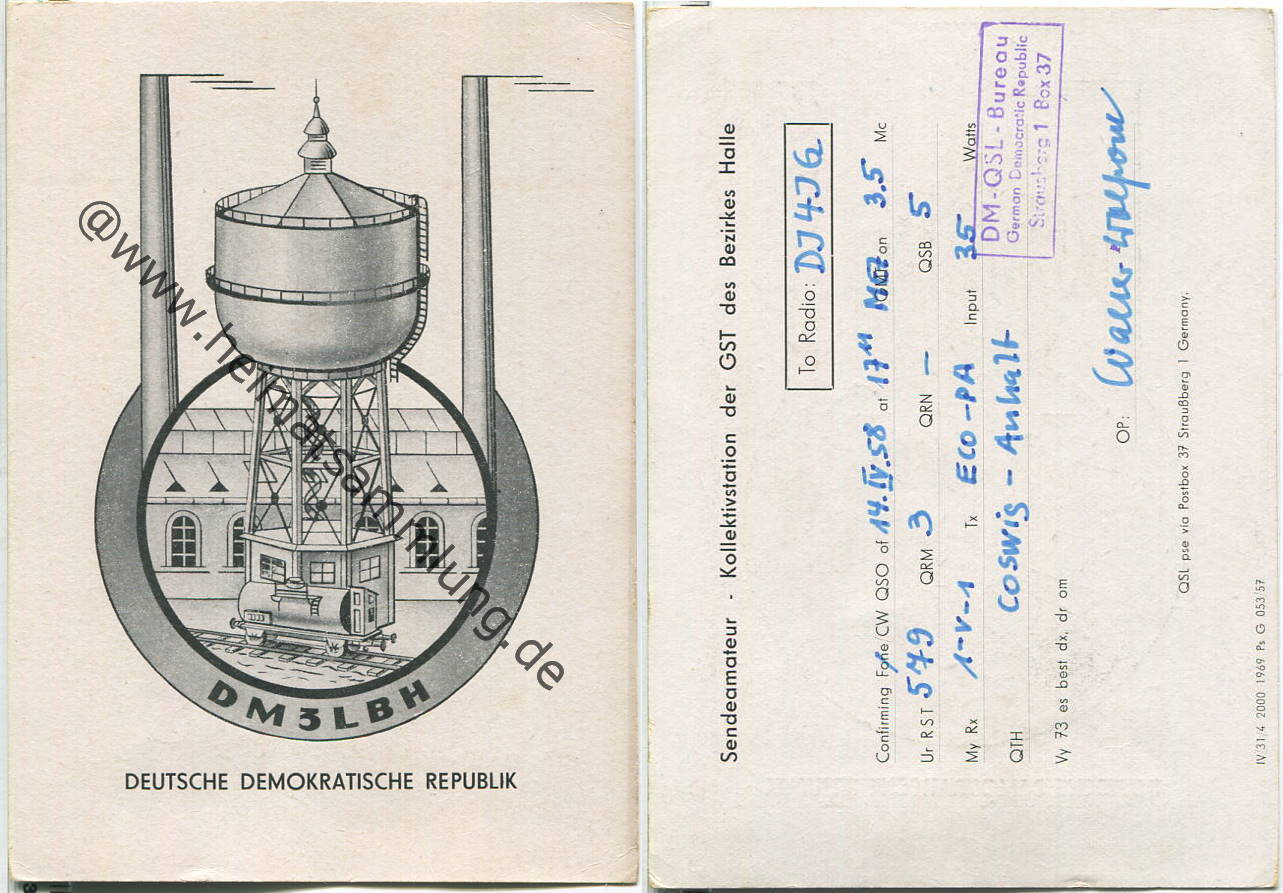 DM3LBH
DEUTSCHE DEMOKRATISCHE REPUBLIK
@www.heimatsammlung.de
Sendeamateur - Kollektivstation der GST des Bezirkes Halle
To Radio: DJ4JG
Confirming Fone/CW QSO of 14.IV.58 at 17 11 MEZ GMT on 3.5 Mc
Ur RST 579 QRM 3 QRN – QSB 5
My Rx 1-V-1 Tx ECO-PA Input 35 Watts
QTH Coswig - Anhalt
Vy 73 es best dx, dr om
OP: Walter
QSL pse via Postbox 37 Straußberg 1 Germany.
IV/31/4 2000 1969 Ps G 053/57
DM-QSL-Bureau
German Democratic Republic
Strausberg 1 Box 37